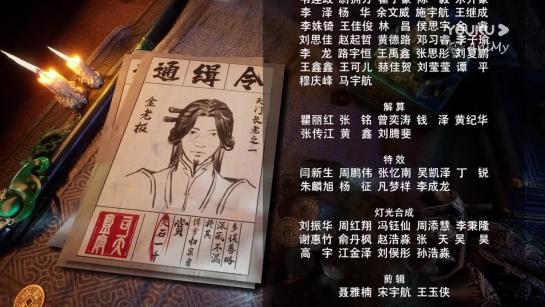 李 泽 杨 华 余文威 施宇航 王继成
刘思佳 赵起哲 黄德路 邓习睿 李子瑜
李 龙 路宇恒 王禹鑫 张思彤 刘夏鹏
王鑫鑫 王可儿 赫佳贺 刘莹莹 谭 平
穆庆峰 马宇航
解算
瞿丽红 张 铭 曾奕涛 钱 泽 黄纪华
张传江 黄 鑫 刘腾斐
特效
闫新生 周鹏伟 张忆南 吴凯泽 丁 锐
朱麟旭 杨 征 凡梦祥 李成龙
灯光合成
刘振华 周红翔 冯钰仙 周添慧 李秉隆
谢惠竹 俞丹枫 赵浩淼 张 天 吴 昊
高 宇 江金泽 刘俣彤 孙浩淼
剪辑
聂雅楠 宋宇航 王玉侠
YOUKU
通缉令
天门长老之一
金老板
赏